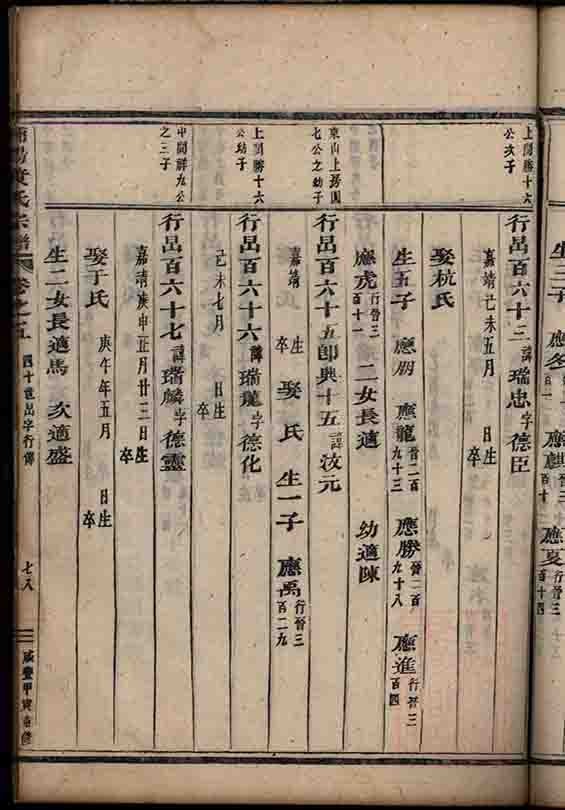 生三子 應
應
應夏 行晉三百十四
上閣勝十六公次子
行呂百六十三 諱瑞忠字德臣
嘉靖己未五月 日生 卒
娶杭氏
生五子 應朋 應龍 晉二百九十三 應勝 晉二百九十八 應進 行晉三百四
應虎 行晉三百十一 二女長適 幼適陳
東山上揚園七公之幼子
行呂百六十五即興十五 諱汝元
嘉靖 生 卒 娶 氏 生一子 應禹 行晉三百二九
上閣勝十六公幼子
行呂百六十六 諱瑞龍字德化
己未七月 日生 卒
中閣祥九公之三子
行呂百六十七 諱瑞麟字德靈
嘉靖庚申正月廿三日生 卒
娶于氏 庚午年五月 日生 卒
生二女長適馬 次適盛
氏宗譜 卷之五 四十世出字行傳 七八 咸豐甲寅重修